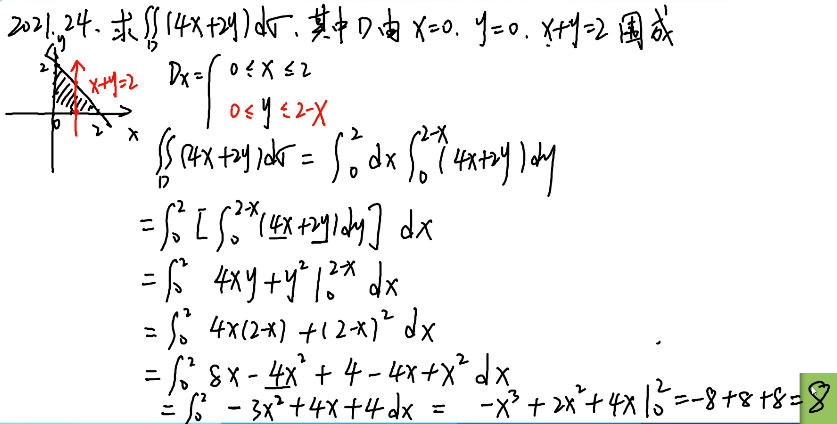 2021.24. 求∬_D (4x+2y)dσ. 其中D由 x=0. y=0. x+y=2 围成
y 2 x+y=2 0 2 x
Dx={ 0≤x≤2
0≤y≤2-x
∬_D (4x+2y)dσ = ∫_0^2 dx ∫_0^{2-x} (4x+2y)dy
= ∫_0^2 [∫_0^{2-x} (4x+2y)dy] dx
= ∫_0^2 4xy+y²|_0^{2-x} dx
= ∫_0^2 4x(2-x)+(2-x)² dx
= ∫_0^2 8x-4x²+4-4x+x² dx
= ∫_0^2 -3x²+4x+4dx = -x³+2x²+4x|_0^2 = -8+8+8=8